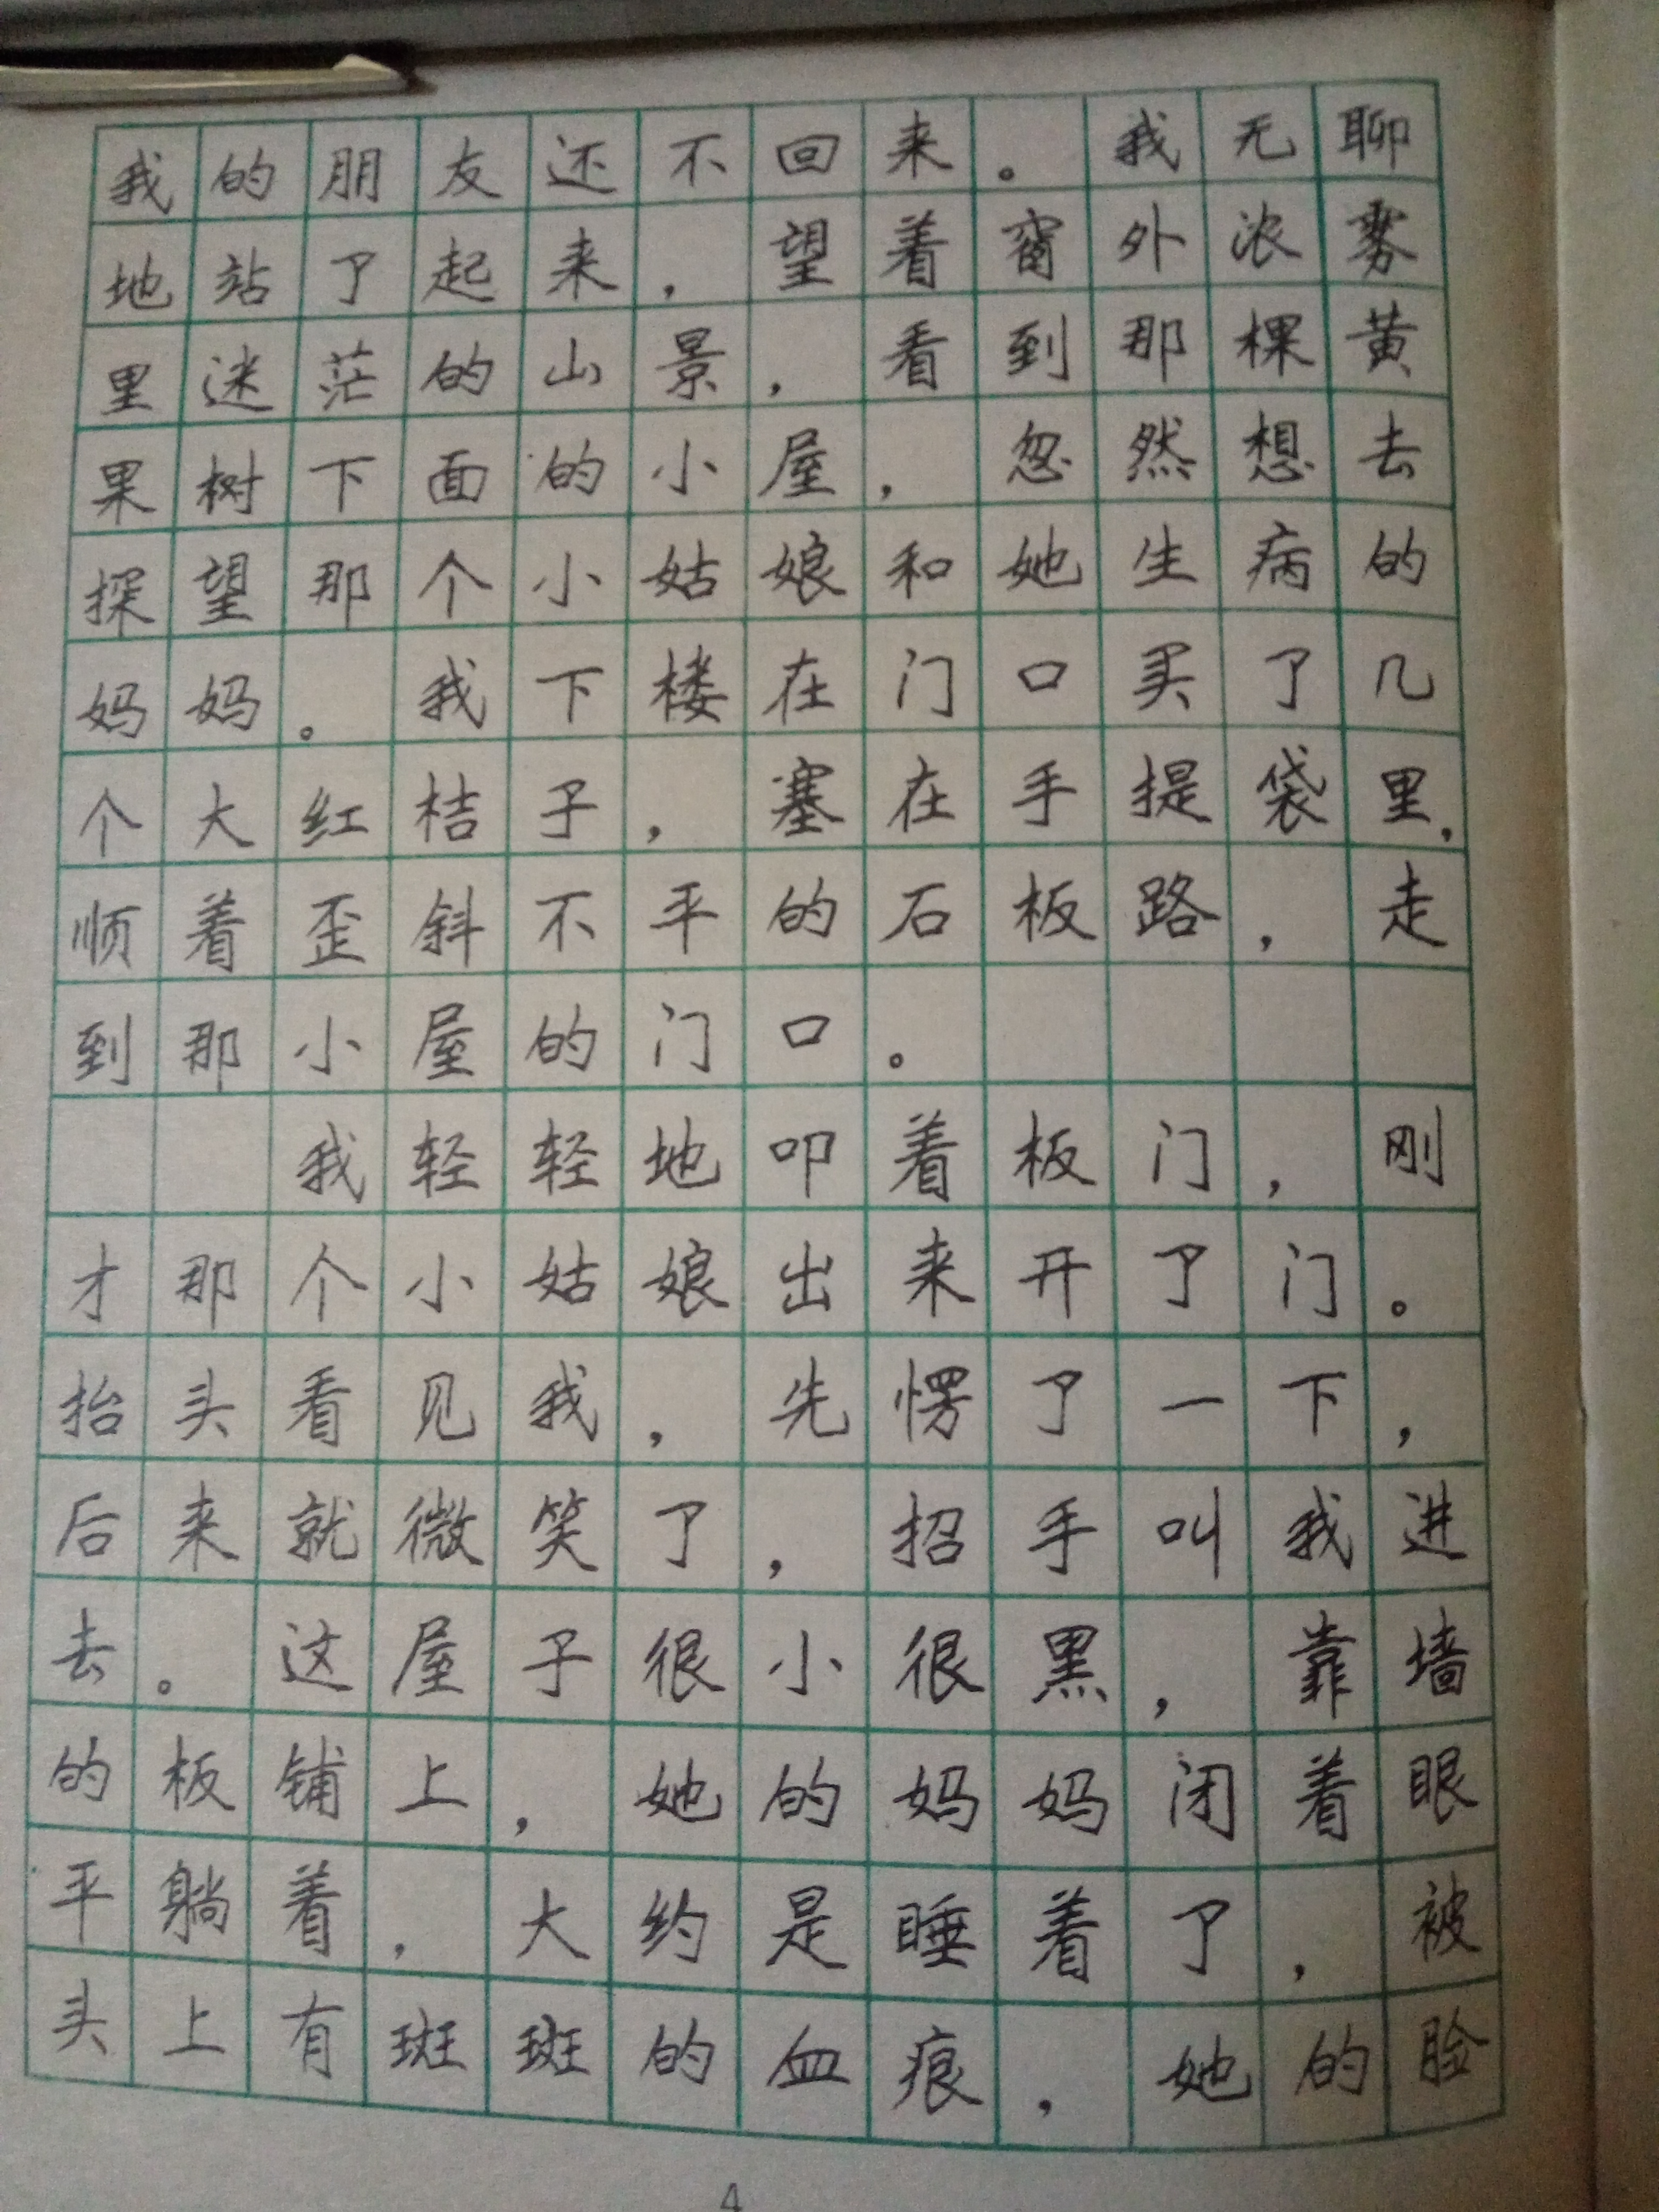 我的朋友还不回来。我无聊
地站了起来，望着窗外浓雾
里迷茫的山景，看到那棵黄
果树下面的小屋，忽然想去
探望那个小姑娘和她生病的
妈妈。我下楼在门口买了几
个大红桔子，塞在手提袋里，
顺着歪斜不平的石板路，走
到那小屋的门口。
我轻轻地叩着板门，刚
才那个小姑娘出来开了门。
抬头看见我，先愣了一下，
后来就微笑了，招手叫我进
去。这屋子很小很黑，靠墙
的板铺上，她的妈妈闭着眼
平躺着，大约是睡着了，被
头上有斑斑的血痕，她的脸
4